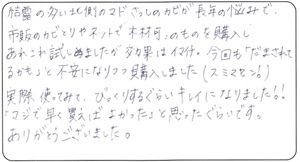 結露の多い北側のマドさっしのカビが長年の悩みで、
市販のカビとりやネットで木材可のものを購入し
あれこれ試しましたが効果はイマイチ。今回も「だまされて
るかも」と不安になりつつ購入しました(スミマセン💧)
実際使ってみて、びっくりするぐらいキレイになりました!!
「マジで早く買えばよかった」と思ったぐらいです。
ありがとうございました。